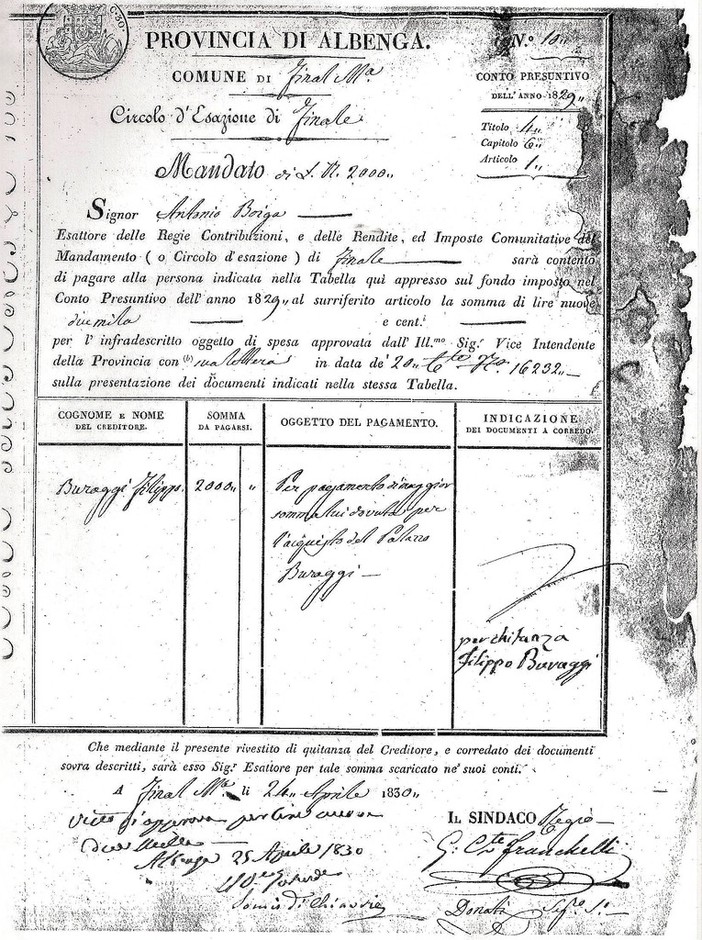 PROVINCIA DI ALBENGA.
N.° 10,,
COMUNE DI Final M.a
CONTO PRESUNTIVO
DELL'ANNO 1829,,
Circolo d'Esazione di Finale
Titolo 4,,
Capitolo 6,,
Articolo 1,,
Mandato di L. N. 2000,,
Signor Antonio Boiga
Esattore delle Regie Contribuzioni, e delle Rendite, ed Imposte Comunitative del
Mandamento ( o Circolo d'esazione ) di Finale sarà contento
di pagare alla persona indicata nella Tabella quì appresso sul fondo imposto nel
Conto Presuntivo dell'anno 1829,, al surriferito articolo la somma di lire nuove
due mila e cent.i
per l'infradescritto oggetto di spesa approvata dall'Ill.mo Sig.r Vice Intendente
della Provincia con (b) in data de' 20,, N.° 16232,,
sulla presentazione dei documenti indicati nella stessa Tabella.
COGNOME E NOME
DEL CREDITORE.
SOMMA
DA PAGARSI.
OGGETTO DEL PAGAMENTO.
INDICAZIONE
DEI DOCUMENTI A CORREDO.
Buraggi Filippo.
2000,, ,,
Per pagamento di maggior
somma lui dovuta per
l'acquisto del Palazzo
Buraggi
per chitanza
Filippo Buraggi
Che mediante il presente rivestito di quitanza del Creditore, e corredato dei documenti
sovra descritti, sarà esso Sig.r Esattore per tale somma scaricato ne' suoi conti.
A Final M.a li 24,, Aprile 1830,,
Visto si approva per lire nuove
due mille
Albenga 25 Aprile 1830
IL SINDACO Regio
G. C.te Franchelli
Donati Seg.o S.o